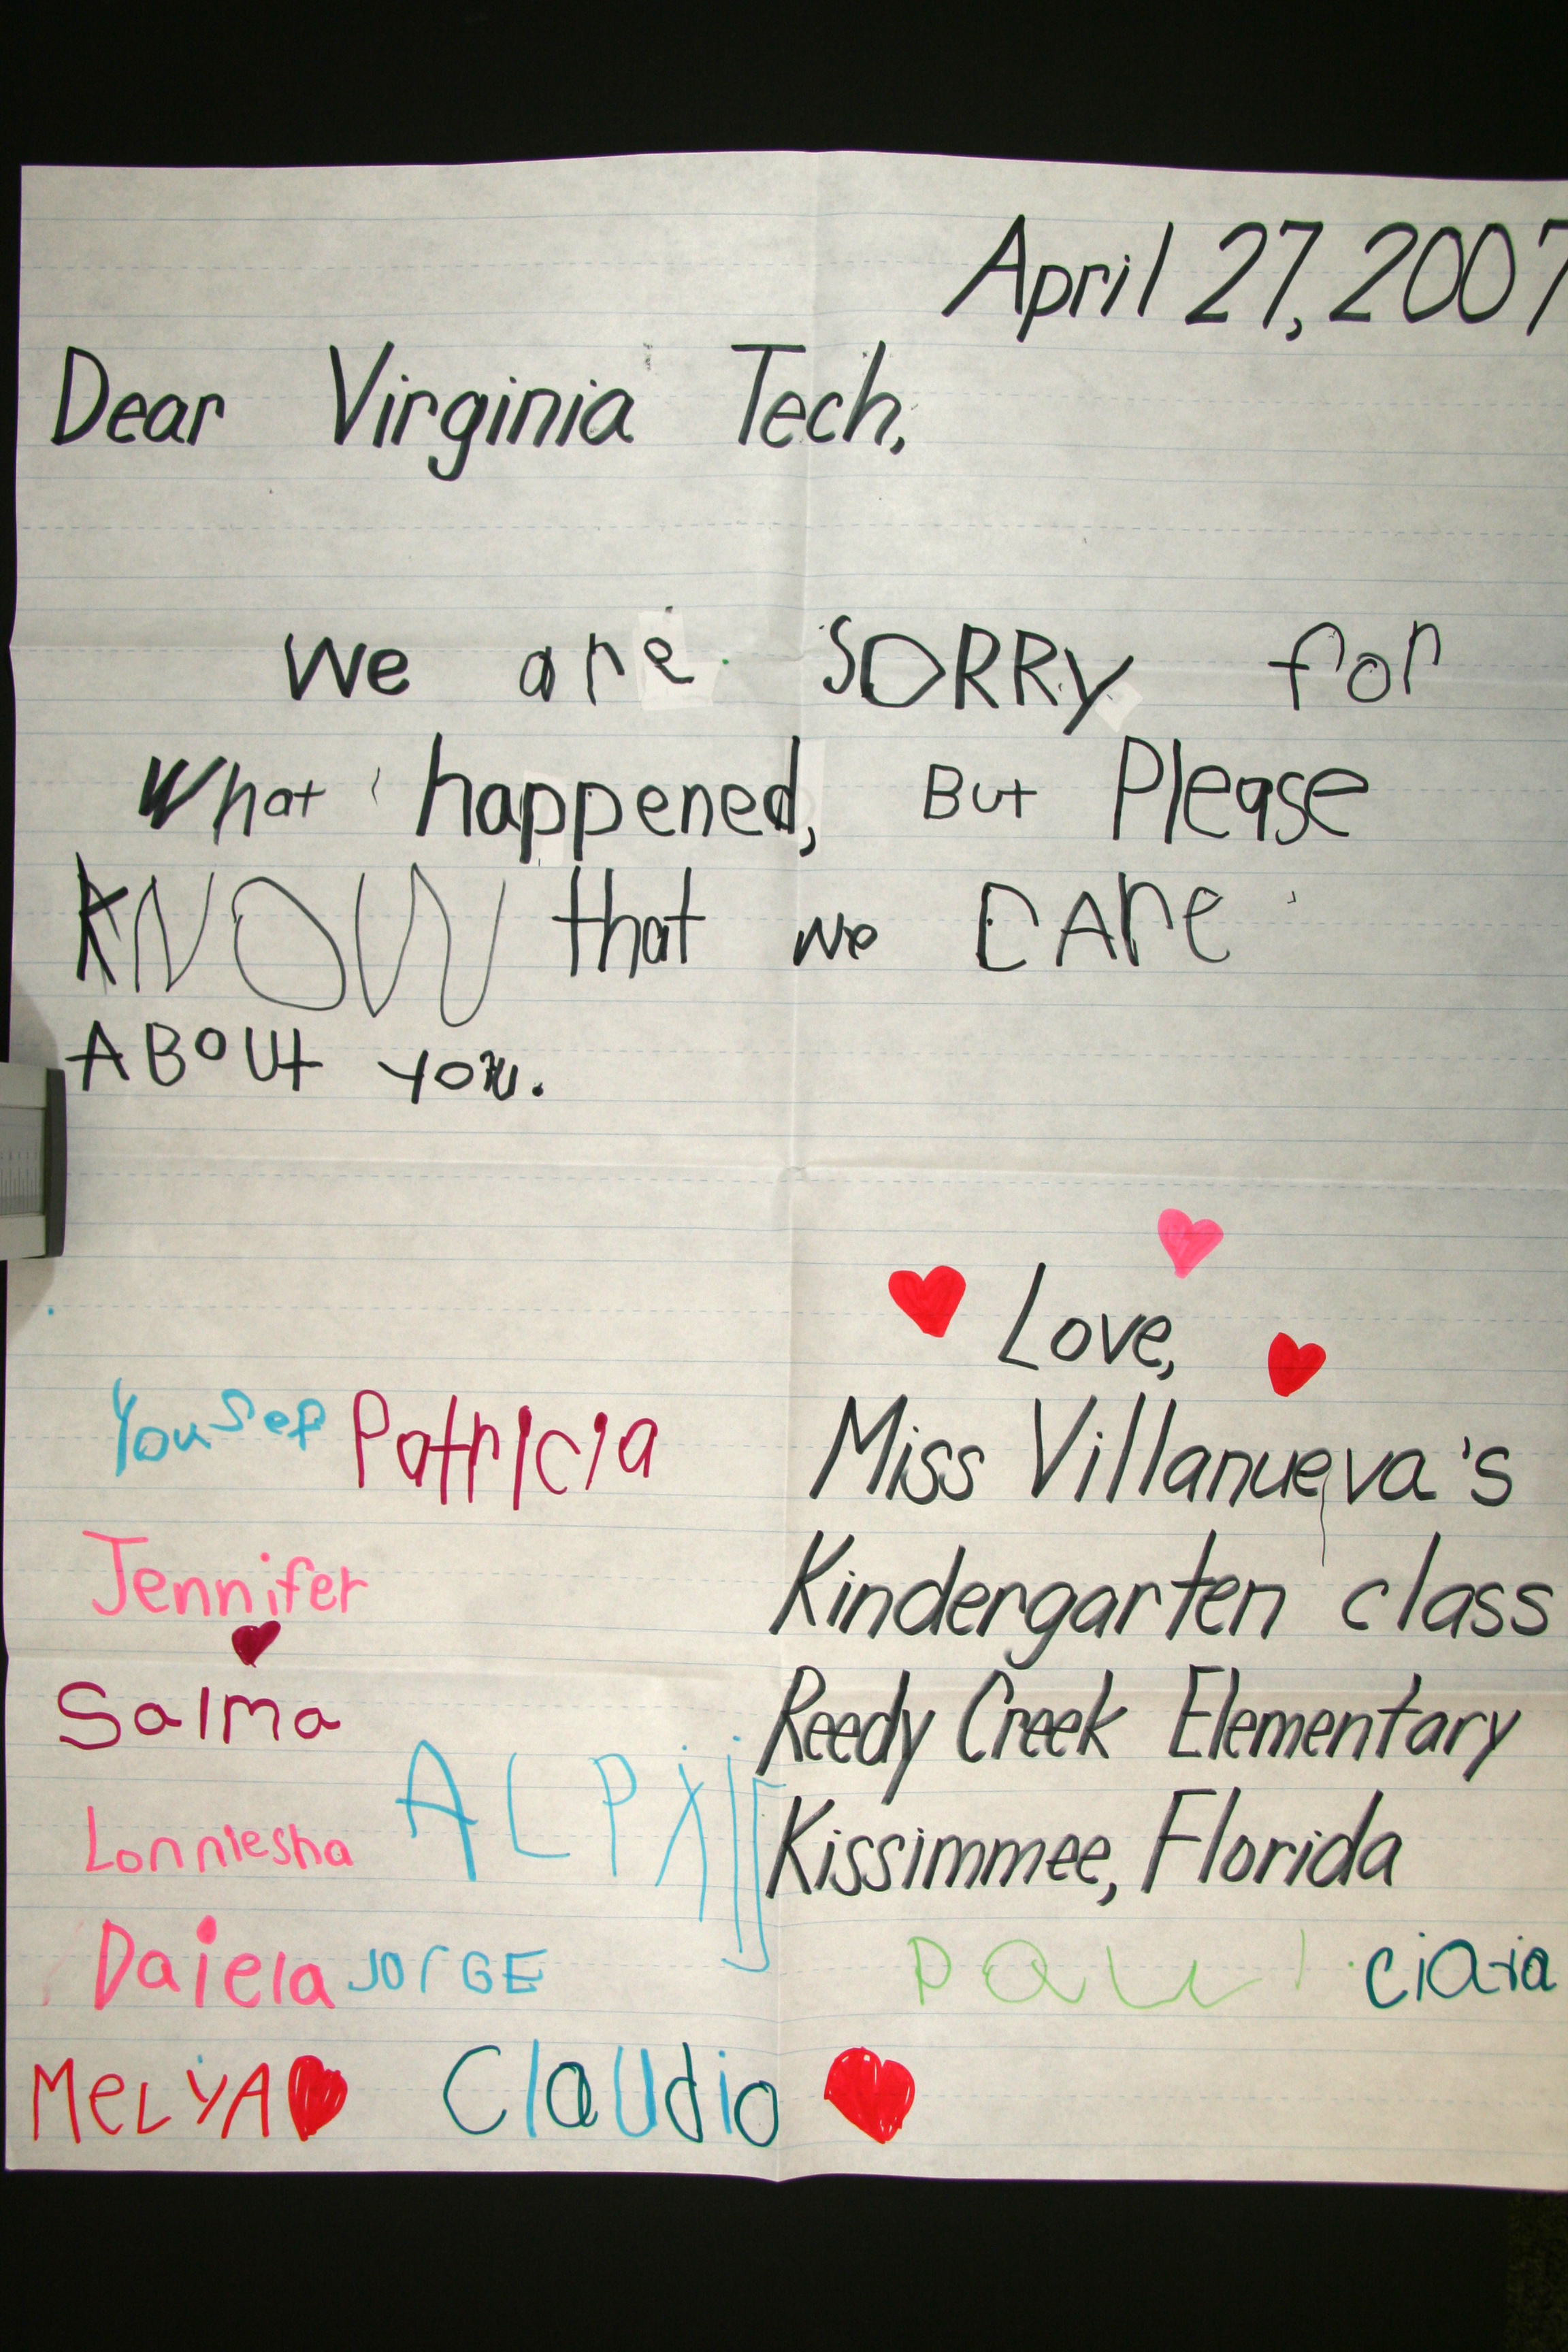 April 27, 2007
Dear Virginia Tech,
We are SORRy for
What happened, But Please
KNOW that we CAre
ABOUt you.
Love,
Yousef Patricia Miss Villanueva's
Jennifer Kindergarten class
Salma Reedy Creek Elementary
Lonniesha Kissimmee, Florida
Daiela JOrGE Paul Ciara
MeLyA ClaUdio